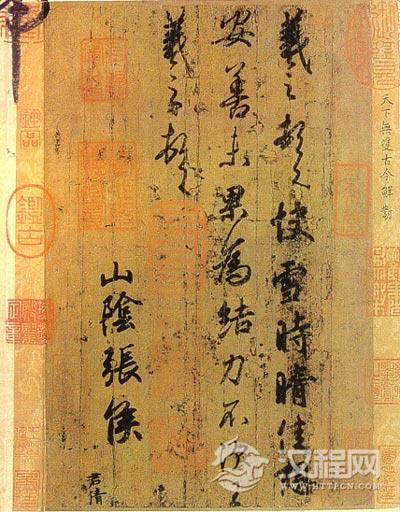 天下無雙古今鮮對
羲之頓首快雪時晴佳想
安善未果為結力不次王
羲之頓首
山陰張侯
君倩
鑑古
汉程网
WWW.HTTPCN.COM